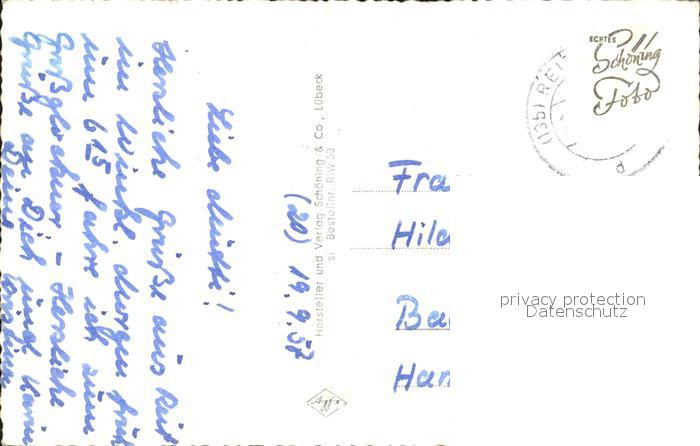 Liebe Mutti!
Herzliche Grüße aus Reit
im Winkl, morgen früh
um 6 15 fahre ich zum
Großglockner - Herzliche
Grüße an Dich und Karin
Deine
(20) 19.9.57
Hersteller und Verlag Schöning & Co., Lübeck
sl Bestellnr. RiW 50
Agfa
ECHTES
Schöning
Foto
(13b) REIT
Fra
Hild
Ba
Han
privacy protection
Datenschutz